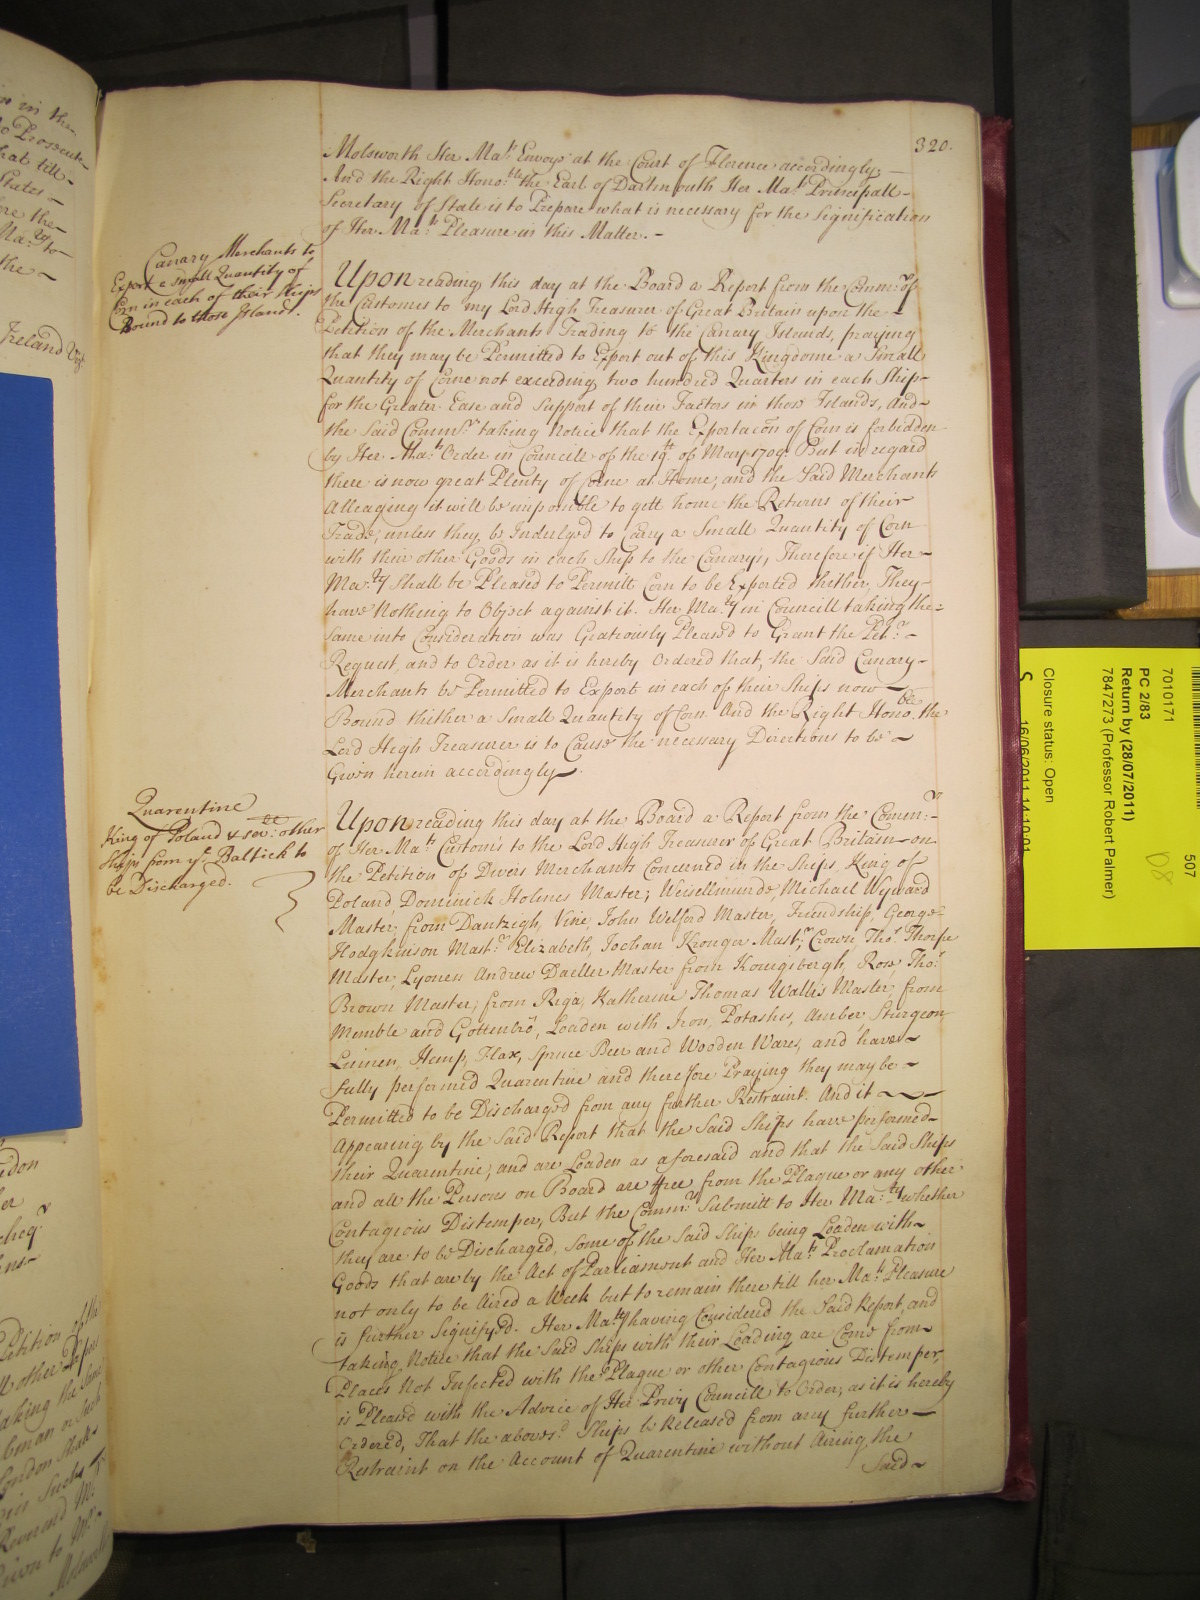 320.
Molsworth Her Ma.ts Envoye at the Court of Florence accordingly;
And the Right Hono:ble the Earl of Dartmouth Her Ma.ts Principall
Secretary of State is to Prepare what is necessary for the Signification
of Her Ma.ts Pleasure in this Matter.
Canary Merchants to
Export a small Quantity of
Corn in each of their Ships
Bound to those Islands.
Upon reading this day at the Board a Report from the Comm:rs of
the Customes to my Lord High Treasurer of Great Britain upon the
Petition of the Merchants Trading to the Canary Islands, praying
that they may be Permitted to Export out of this Kingdome a Small
Quantity of Corne not exceeding two hundred Quarters in each Ship
for the Greater Ease and Support of their Factors in those Islands, And
the Said Comm:rs taking Notice that the Exportacon of Corn is forbidden
by Her Ma:ts Order in Councill of the 19th. of May 1709. But in regard
there is now great Plenty of Corne at Home, and the Said Merchants
Alleaging it will be impossible to gett home the Returns of their
Trade, unless they be Indulged to Carry a Small Quantity of Corn
with their other Goods in each Ship to the Canary's, Therefore if Her
Ma:ty shall be Pleased to Permitt Corn to be Exported thither, They
have Nothing to Object against it. Her Ma:ty in Councill taking the
Same into Consideration was Gratiously Pleased to Grant the Pet:rs
Request, and to Order as it is hereby Ordered that, the Said Canary
Merchants be Permitted to Export in each of their Ships now
Bound thither a Small Quantity of Corn. And the Right Hono:ble the
Lord High Treasurer is to Cause the necessary Directions to be
Given herein accordingly
Quarentine
King of Poland & sev:ll other
Ships from ye. Baltick to
be Discharged.
Upon reading this day at the Board a Report from the Comm:rs
of Her Ma:ts Customs to the Lord High Treasurer of Great Britain on
the Petition of Divers Merchants Concerned in the Ships King of
Poland, Dominick Holmes Master; Weisellmunde, Michael Wyward
Master; from Dantzigh, Vine, John Welford Master, Friendship, George
Hodgkinson Mast:r Elizabeth, Jochan Kronger Mast:r, Crown, Tho:s Thorpe
Master, Lyoness Andrew Daeller Master from Koingsbergh, Rose, Tho:s
Brown Master; from Riga, Katherine Thomas Wallis Master; from
Memble and Gottenbro, Loaden with Iron, Potashes, Amber Sturgeon
Linnen, Hemp, Flax, Spruce Beer and Wooden Wares, and have
fully performed Quarentine and therefore Praying they may be
Permitted to be Discharged from any further Restraint. And it
Appearing by the Said Report that the Said Ships have performed
their Quarentine; and are Loaden as aforesaid and that the Said Ships
and all the Persons on Board are free from the Plague or any other
Contagious Distemper, But the Comm:rs Submitt to Her Ma:ty whether
they are to be Discharged, Some of the Said Ships being Loaden with
Goods that are by the Act of Parliament and Her Ma:ts Proclamation
not only to be Aired a Week but to remain there till her Ma:ts Pleasure
is further Signify'd. Her Ma:ty having Considered the Said Report, and
taking Notice that the Said Ships with their Loading are Come from
Places Not Infected with the Plague or other Contagious Distemper,
is Pleased with the Advice of Her Privy Councill to Order, as it is hereby
Ordered, That the aboves:d Ships be Released from any further
Restraint on the Account of Quarentine without Airing the
Said
507
7010171
PC 2/83
Return by (28/07/2011)
7847273 (Professor Robert Palmer)
Closure status: Open
16/06/2011 14:10:01